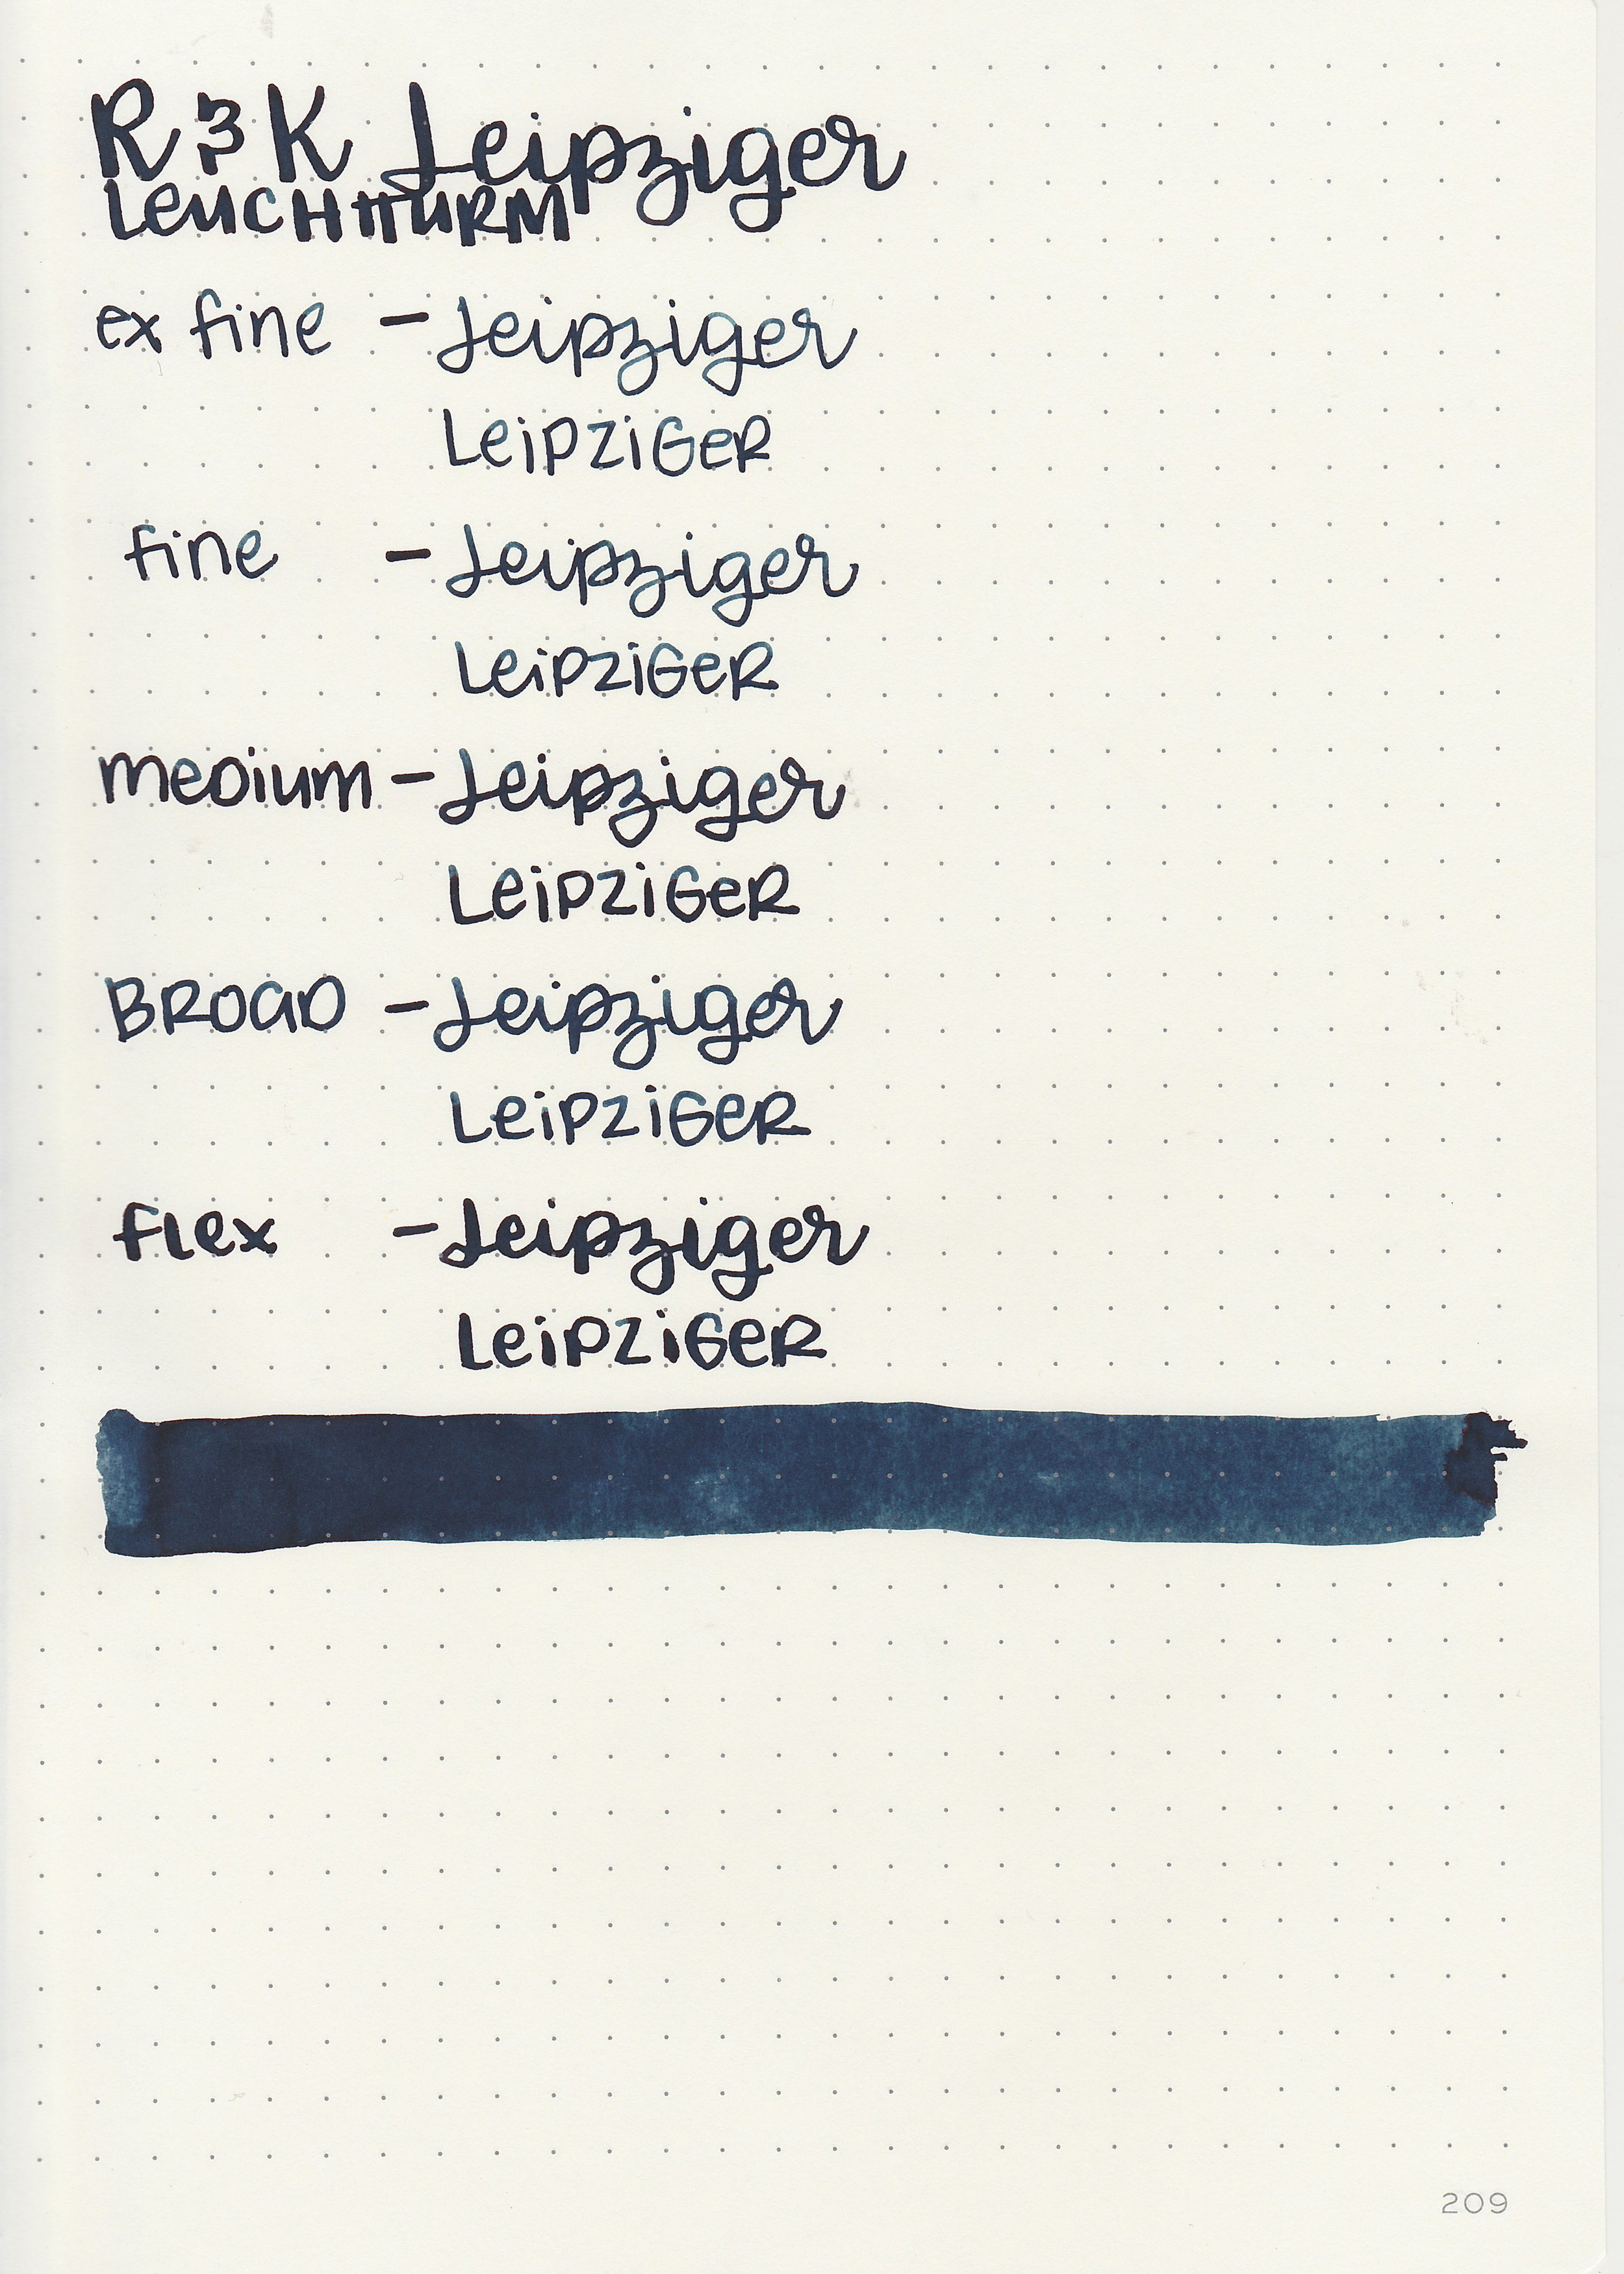 R & K Leipziger
LEUCHTTURM
ex fine - Leipziger
LEIPZIGER
fine - Leipziger
LEIPZIGER
medium - Leipziger
LEIPZIGER
BROAD - Leipziger
LEIPZIGER
flex - Leipziger
LEIPZIGER
209